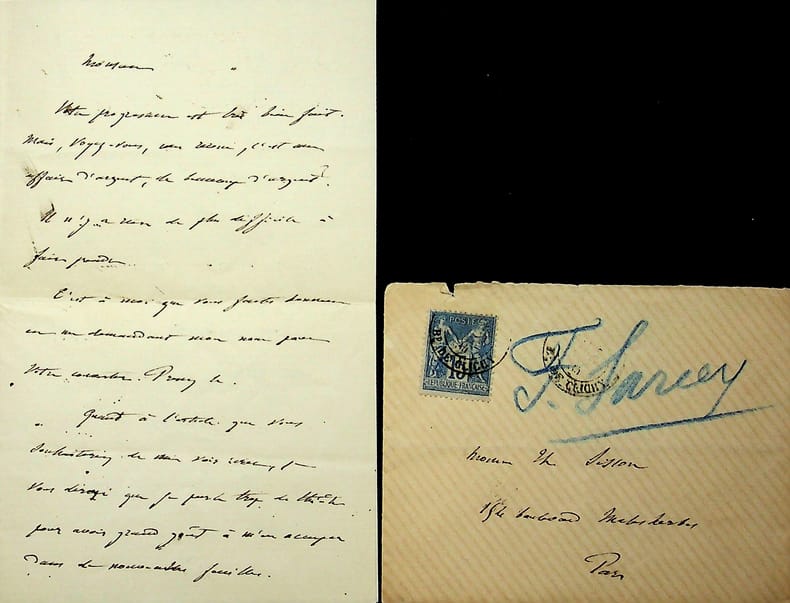 Monsieur
Votre programme est très bien fait.
Mais, voyez-vous, une revue, c'est une
affaire d'argent, de beaucoup d'argent.
Il n'y a rien de plus difficile à
faire prendre.
C'est à moi que vous faites honneur
en me demandant mon nom pour
votre couverture. Prenez le.
Quant à l'article que vous
souhaiteriez de me voir écrire, je
vous dirai que je parle trop de théâtre
pour avoir grand goût à m'en occuper
dans de nouvelles feuilles.
POSTES
15
REPUBLIQUE FRANÇAISE
Bd DE CLICHY
DE CLICHY
F. Sarcey
Monsieur Th Sisson
154 boulevard Malesherbes
Paris